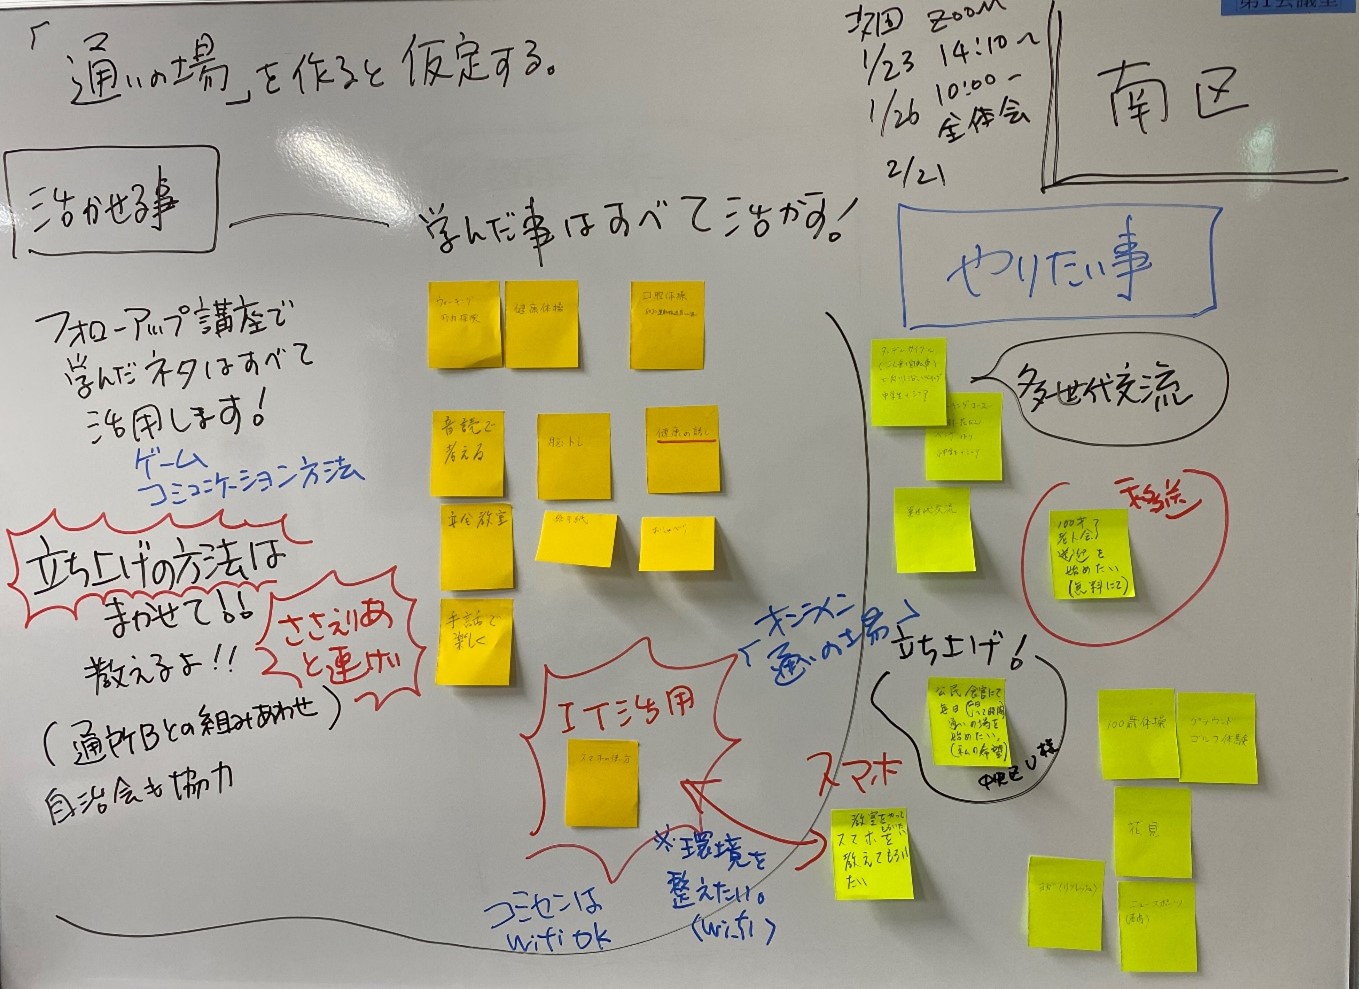 「通いの場」を作ると仮定する。
次回 ZOOM
1/23 14:10〜
1/26 10:00〜
全体会
2/21
南区
活かせる事
学んだ事はすべて活かす!
やりたい事
フォローアップ講座で
学んだネタはすべて
活用します!
ゲーム
コミュニケーション方法
立ち上げの方法は
まかせて!!
教えるよ!!
ささえりあ
と連けい
(通所Bとの組みあわせ)
自治会も協力
健康体操
口腔体操
音読で
考える
脳トレ
健康の話し
安全教室
絵手紙
手話で
楽しく
IT活用
スマホの使い方
「オンライン
通いの場」
※環境を
整えたい。
(wifi)
コミセンは
wifi OK
多世代交流
世代交流
移送
100才
老人会
送迎を
始めたい
(無料にて)
立ち上げ!
公民館にて
毎日
通いの場を
始めたい
(私の希望)
中央区U様
スマホ
教室をやって
スマホを
教えてもらい
たい
100歳体操
グラウンド
ゴルフ体験
花見
ヨガ(リフレッシュ)
ニュースポーツ